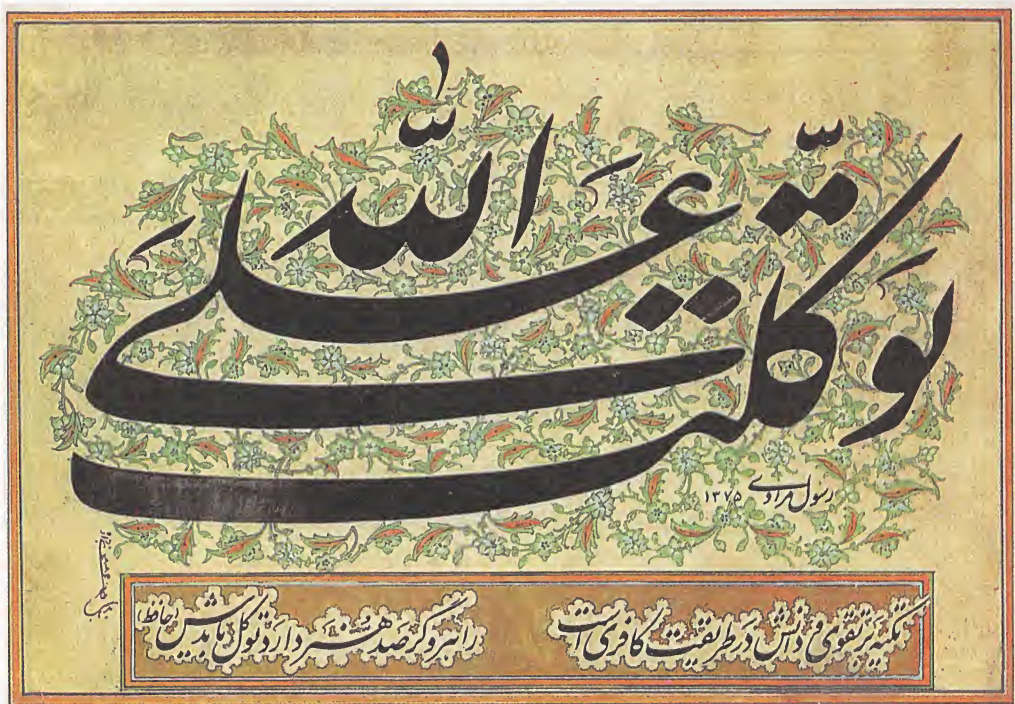 توکّلت علی اللّٰه
رسول مرادی ۱۳۷۵
تکیه بر تقوی و دانش در طریقت کافری است راهرو گر صد هنر دارد توکل بایدش (حافظ)